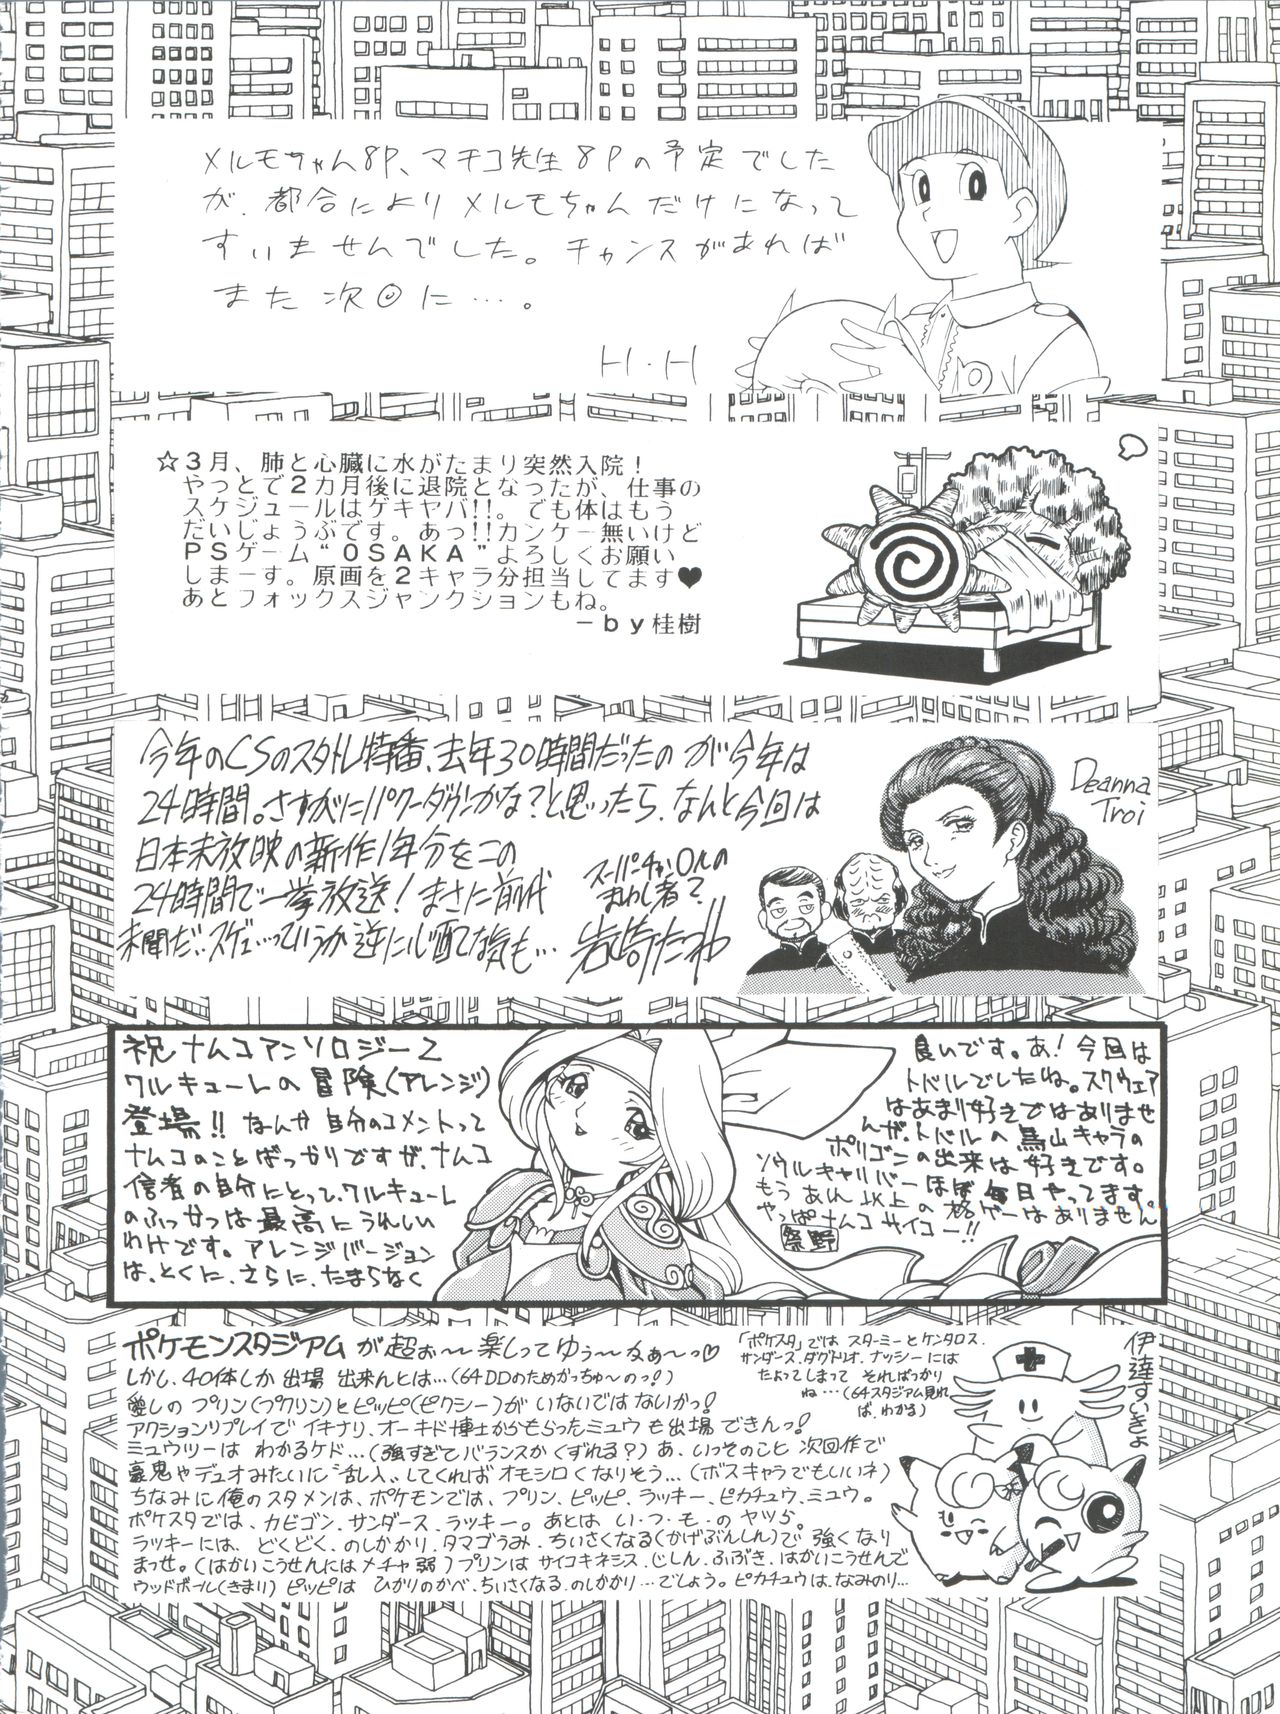 メルモちゃん8P、マチコ先生8Pの予定でした
が、都合によりメルモちゃんだけになって
すいませんでした。チャンスがあれば
また次回に…。
H・H
☆3月、肺と心臓に水がたまり突然入院！
やっとで2カ月後に退院となったが、仕事の
スケジュールはゲキヤバ!!。でも体はもう
だいじょうぶです。あっ!!カンケー無いけど
PSゲーム“OSAKA”よろしくお願い
しまーす。原画を2キャラ分担当してます♥
あとフォックスジャンクションもね。
－by桂樹
今年のCSのスタトレ特番、去年30時間だったのが今年は
24時間。さすがにパワーダウンかな？と思ったら、なんと今回は
日本未放映の新作1年分をこの
24時間で一挙放送！まさに前代
未聞だ‥スゲェ…っていうか逆に心配な気も…
スーパーチャンネルの
まわし者？
岩崎たつや
Deanna
Troi
祝ナムコアンソロジー2
ワルキューレの冒険(アレンジ)
登場!! なんか自分のコメントって
ナムコのことばっかりですが、ナムコ
信者の自分にとって、ワルキューレ
のふっかつは最高にうれしい
わけです。アレンジバージョン
は、とくに、さらに、たまらなく
良いです。あ！今回は
トバルでしたね。スクウェア
はあまり好きではありませ
んが、トバルの鳥山キャラの
ポリゴンの出来は好きです。
ソウルキャリバーほぼ毎日やってます。
もうあれ以上の格ゲーはありません
やっぱナムコサイコー!!
祭野
ポケモンスタジアムが超ぉ～楽しってゆぅ～なぁ～っ♡
しかし、40体しか出場出来んとは…(64DDのためがっちゅ～のっ！)
愛しのプリン(プクリン)とピッピ(ピクシー)がいないではないかっ！
アクションリプレイでイキナリ、オーキド博士からもらったミュウも出場できんっ！
ミュウツーはわかるケド…(強すぎてバランスがくずれる？)あ、いっそのこと次回作で
豪鬼やデュオみたいに“乱入”してくればオモシロくなりそう…(ボスキャラでもいいネ)
ちなみに俺のスタメンは、ポケモンでは、プリン、ピッピ、ラッキー、ピカチュウ、ミュウ。
ポケスタでは、カビゴン、サンダース、ラッキー。あとはい・つ・も・のヤツら。
ラッキーには、どくどく、のしかかり、タマゴうみ、ちいさくなる(かげぶんしん)で強くなり
まっせ。(はかいこうせんにはメチャ弱)プリンはサイコキネシス、じしん、ふぶき、はかいこうせんで
ウッドボール(きまり)ピッピはひかりのかべ、ちいさくなる、のしかかり…でしょう。ピカチュウは、なみのり…
「ポケスタ」ではスターミーとケンタロス、
サンダース、ダグトリオ、ナッシーには
たよってしまってそればっかり
ね…(64スタジアム見れ
ば、わかる)
伊達すいきょ